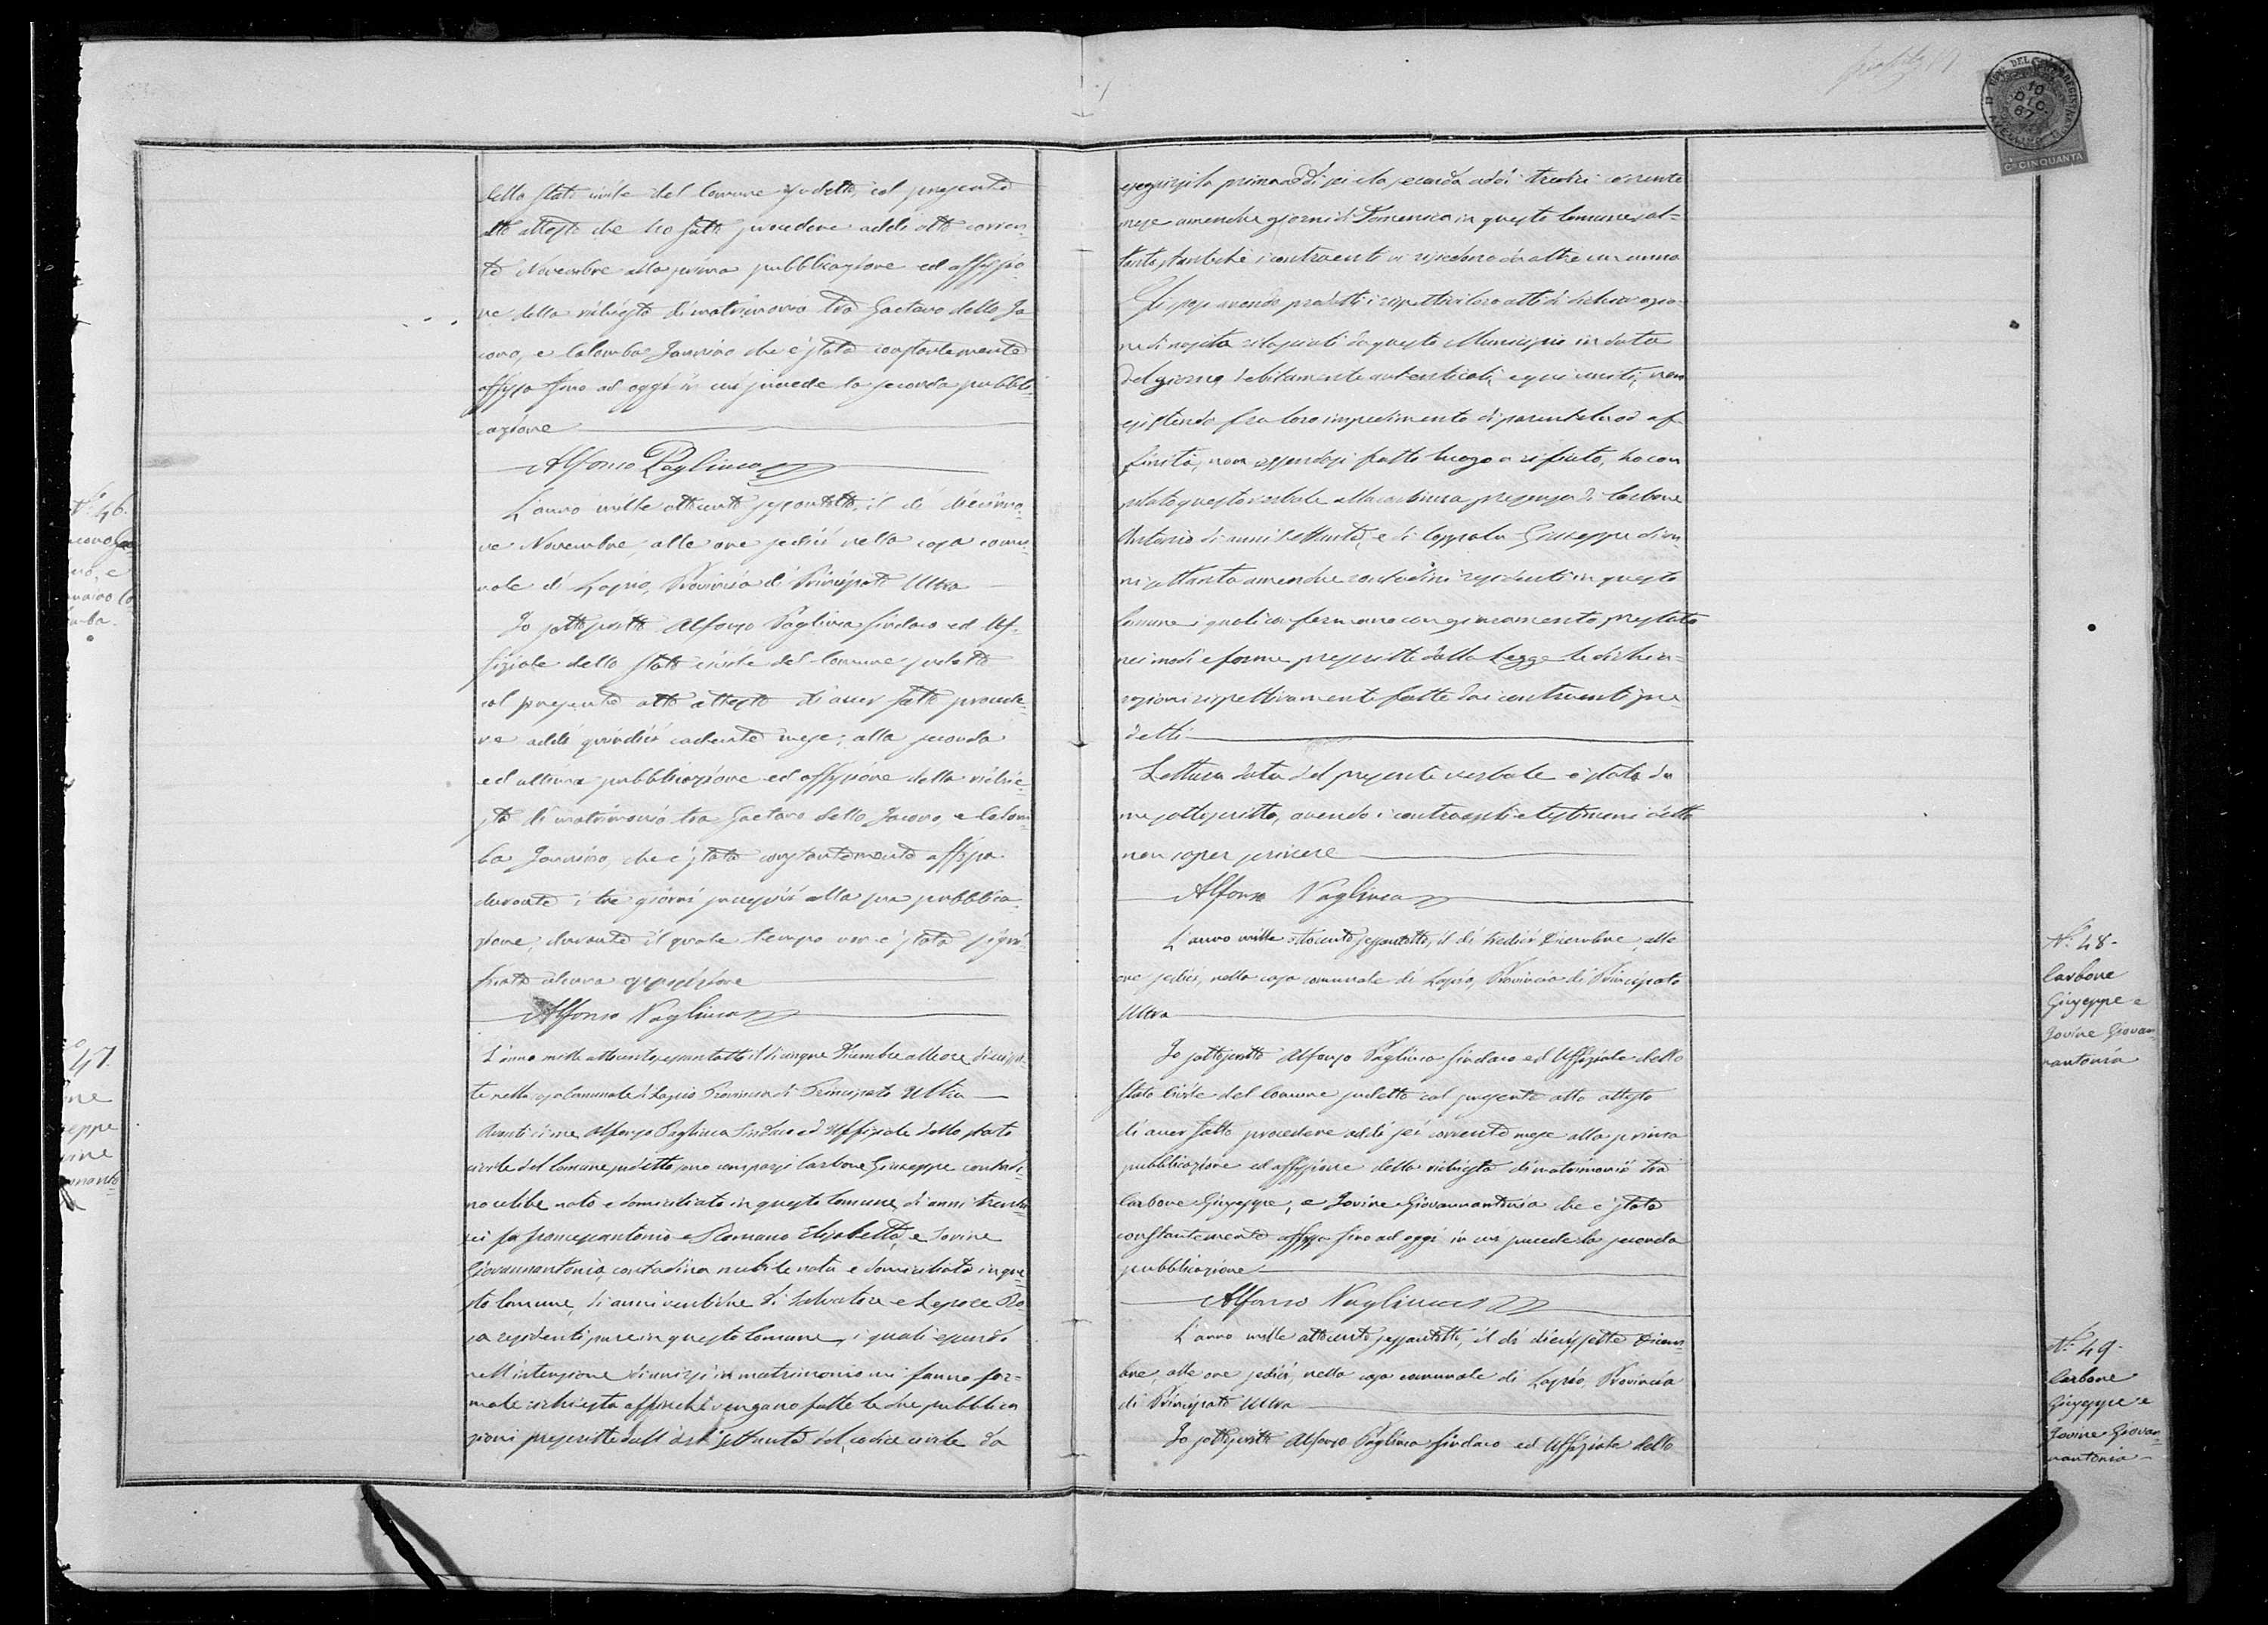 dello Stato civile del Comune sudetto, col presente
atto attesto che ho fatto procedere addì otto corren-
te Novembre alla prima pubblicazione ed affissio-
ne della richiesta di matrimonio tra Gaetano dello Ja-
cono, e Colomba Jannino che è stata constantemente
affissa fino ad oggi in cui procede la seconda pubbli-
cazione
Alfonso Pagliuca
N.° 46.
cono Gae
no, e
nnino Co
mba.
L'anno mille ottocento sessantotto, il dì diecino-
ve Novembre, alle ore sedici nella casa comu-
nale di Lapio, Provincia di Principato Ultra
Io sottoscritto Alfonso Pagliuca Sindaco ed Uf-
fiziale dello Stato civile del Comune sudetto
col presente atto attesto di aver fatto procede-
re addì quindici cadente mese, alla seconda
ed ultima pubblicazione ed affissione della richie-
sta di matrimonio tra Gaetano dello Jacono, e Colom-
ba Jannino, che è stata constantemente affissa
durante i tre giorni successivi alla sua pubblica-
zione, durante il quale tempo non è stata signi-
ficata alcuna opposizione
Alfonso Pagliuca
47.
one
seppe
vine
nnanto
L'anno mille ottocento sessantotto il dì cinque Dicembre alle ore dieciset-
te nella casa Comunale di Lapio Provincia di Principato Ultra
Avanti di me Alfonso Pagliuca Sindaco ed Uffiziale dello stato
civile del Comune sudetto sono comparsi Carbone Giuseppe contadi-
no celibe nato e domiciliato in questo Comune, di anni trenta
sei fu Francescantonio e Romano Elisabetta, e Iovine
Giovannantonia, contadina nubile nata e domiciliata in que-
sto Comune, di anni ventitre di Salvatore e Lepore Ro-
sa residenti pure in questo Comune, i quali essendo
nell'intenzione di unirsi in matrimonio mi fanno for-
male richiesta affinchè vengano fatte le due pubblica
zioni prescritte dall'art.° settanta del codice civile da
eseguirsi la prima addì sei e la seconda addì tredici corrente
mese amendue giorni di Domenica in questo Comune sol-
tanto, stantechè i contraenti vi risiedono da oltre un anno
Gli sposi avendo prodotti i rispettivi loro atti di dichiarazio-
ne di nascita rilasciati da questo Municipio in data
del giorno, debitamente autenticati, e qui uniti, non
esistendo fra loro impedimento di parentela od af-
finità, non essendosi fatto luogo a rifiuto, ho com
pilato questo verbale alla continua presenza di Carbone
Antonio di anni settanta, e di Coppola Giuseppe di an-
ni settanta amendue contadini residenti in questo
Comune i quali confermano con giuramento prestato
nei modi e forme prescritte dalla Legge le dichia-
razioni rispettivamente fatte dai contraenti su-
detti
Lettura data del presente verbale è stato da
me sottoscritto, avendo i contraenti e testimoni detto
non saper scrivere
Alfonso Pagliuca
N.° 48.
Carbone
Giuseppe e
Jovine Giovan-
nantonia
L'anno mille ottocento sessantotto, il dì tredici Dicembre, alle
ore sedici, nella casa comunale di Lapio, Provincia di Principato
Ultra
Io sottoscritto Alfonso Pagliuca Sindaco ed Uffiziale dello
Stato Civile del Comune sudetto col presente atto attesto
di aver fatto procedere addì sei corrente mese alla prima
pubblicazione ed affissione della richiesta di matrimonio tra
Carbone Giuseppe, e Jovine Giovannantonia che è stata
constantemente affissa fino ad oggi in cui procede la seconda
pubblicazione
Alfonso Pagliuca
N.° 49.
Carbone
Giuseppe e
Jovine Giovan-
nantonia
L'anno mille ottocento sessantotto, il dì diecissette Dicem-
bre, alle ore sedici, nella casa comunale di Lapio, Provincia
di Principato Ultra
Io sottoscritto Alfonso Pagliuca Sindaco ed Uffiziale dello
10
DIC
67
C.mi CINQUANTA